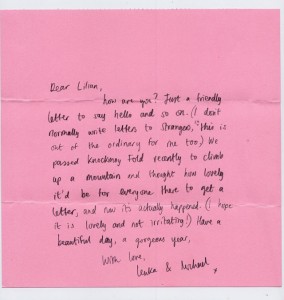 Dear Lilian,
how are you? Just a friendly
letter to say hello and so on. (I don't
normally write letters to strangers, this is
out of the ordinary for me too.) We
passed Knockney Fold recently to climb
up a mountain and thought how lovely
it'd be for everyone there to get a
letter, and now it's actually happened. (I hope
it is lovely and not irritating!) Have a
beautiful day, a gorgeous year,
With love,
& Michael
x